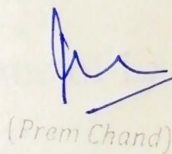 (Prem Chand)